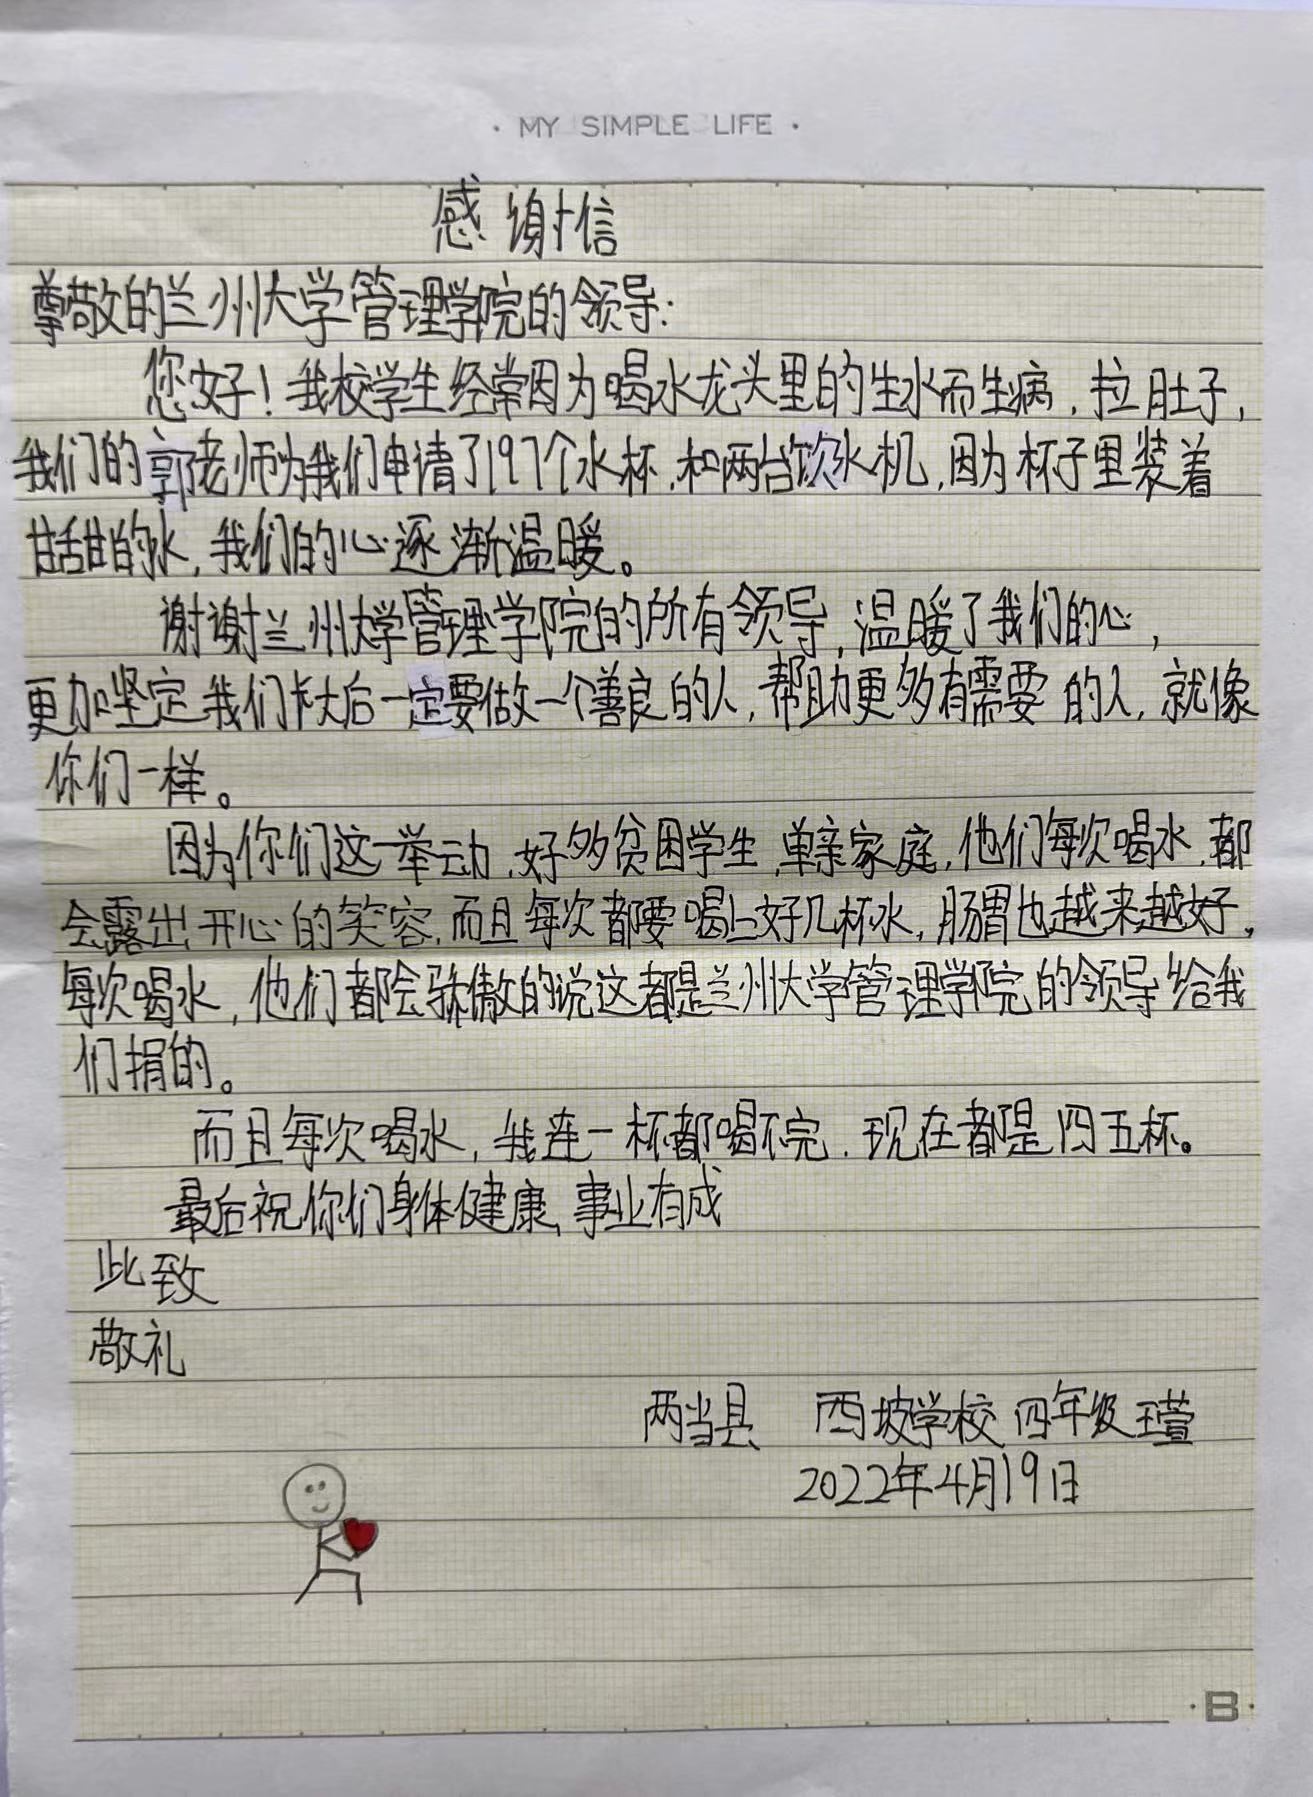 · MY SIMPLE LIFE ·
感谢信
尊敬的兰州大学管理学院的领导:
您好！我校学生经常因为喝水龙头里的生水而生病，拉肚子，
我们的郭老师为我们申请了197个水杯，和两台饮水机，因为杯子里装着
甜甜的水，我们的心逐渐温暖。
谢谢兰州大学管理学院的所有领导，温暖了我们的心，
更加坚定我们长大后一定要做一个善良的人，帮助更多有需要的人，就像
你们一样。
因为你们这一举动，好多贫困学生，单亲家庭，他们每次喝水，都
会露出开心的笑容，而且每次都要喝上好几杯水，肠胃也越来越好，
每次喝水，他们都会骄傲的说这都是兰州大学管理学院的领导给我
们捐的。
而且每次喝水，我连一杯都喝不完，现在都是四五杯。
最后祝你们身体健康，事业有成
此致
敬礼
两当县 西坡学校四年级王萱
2022年4月19日
·B·